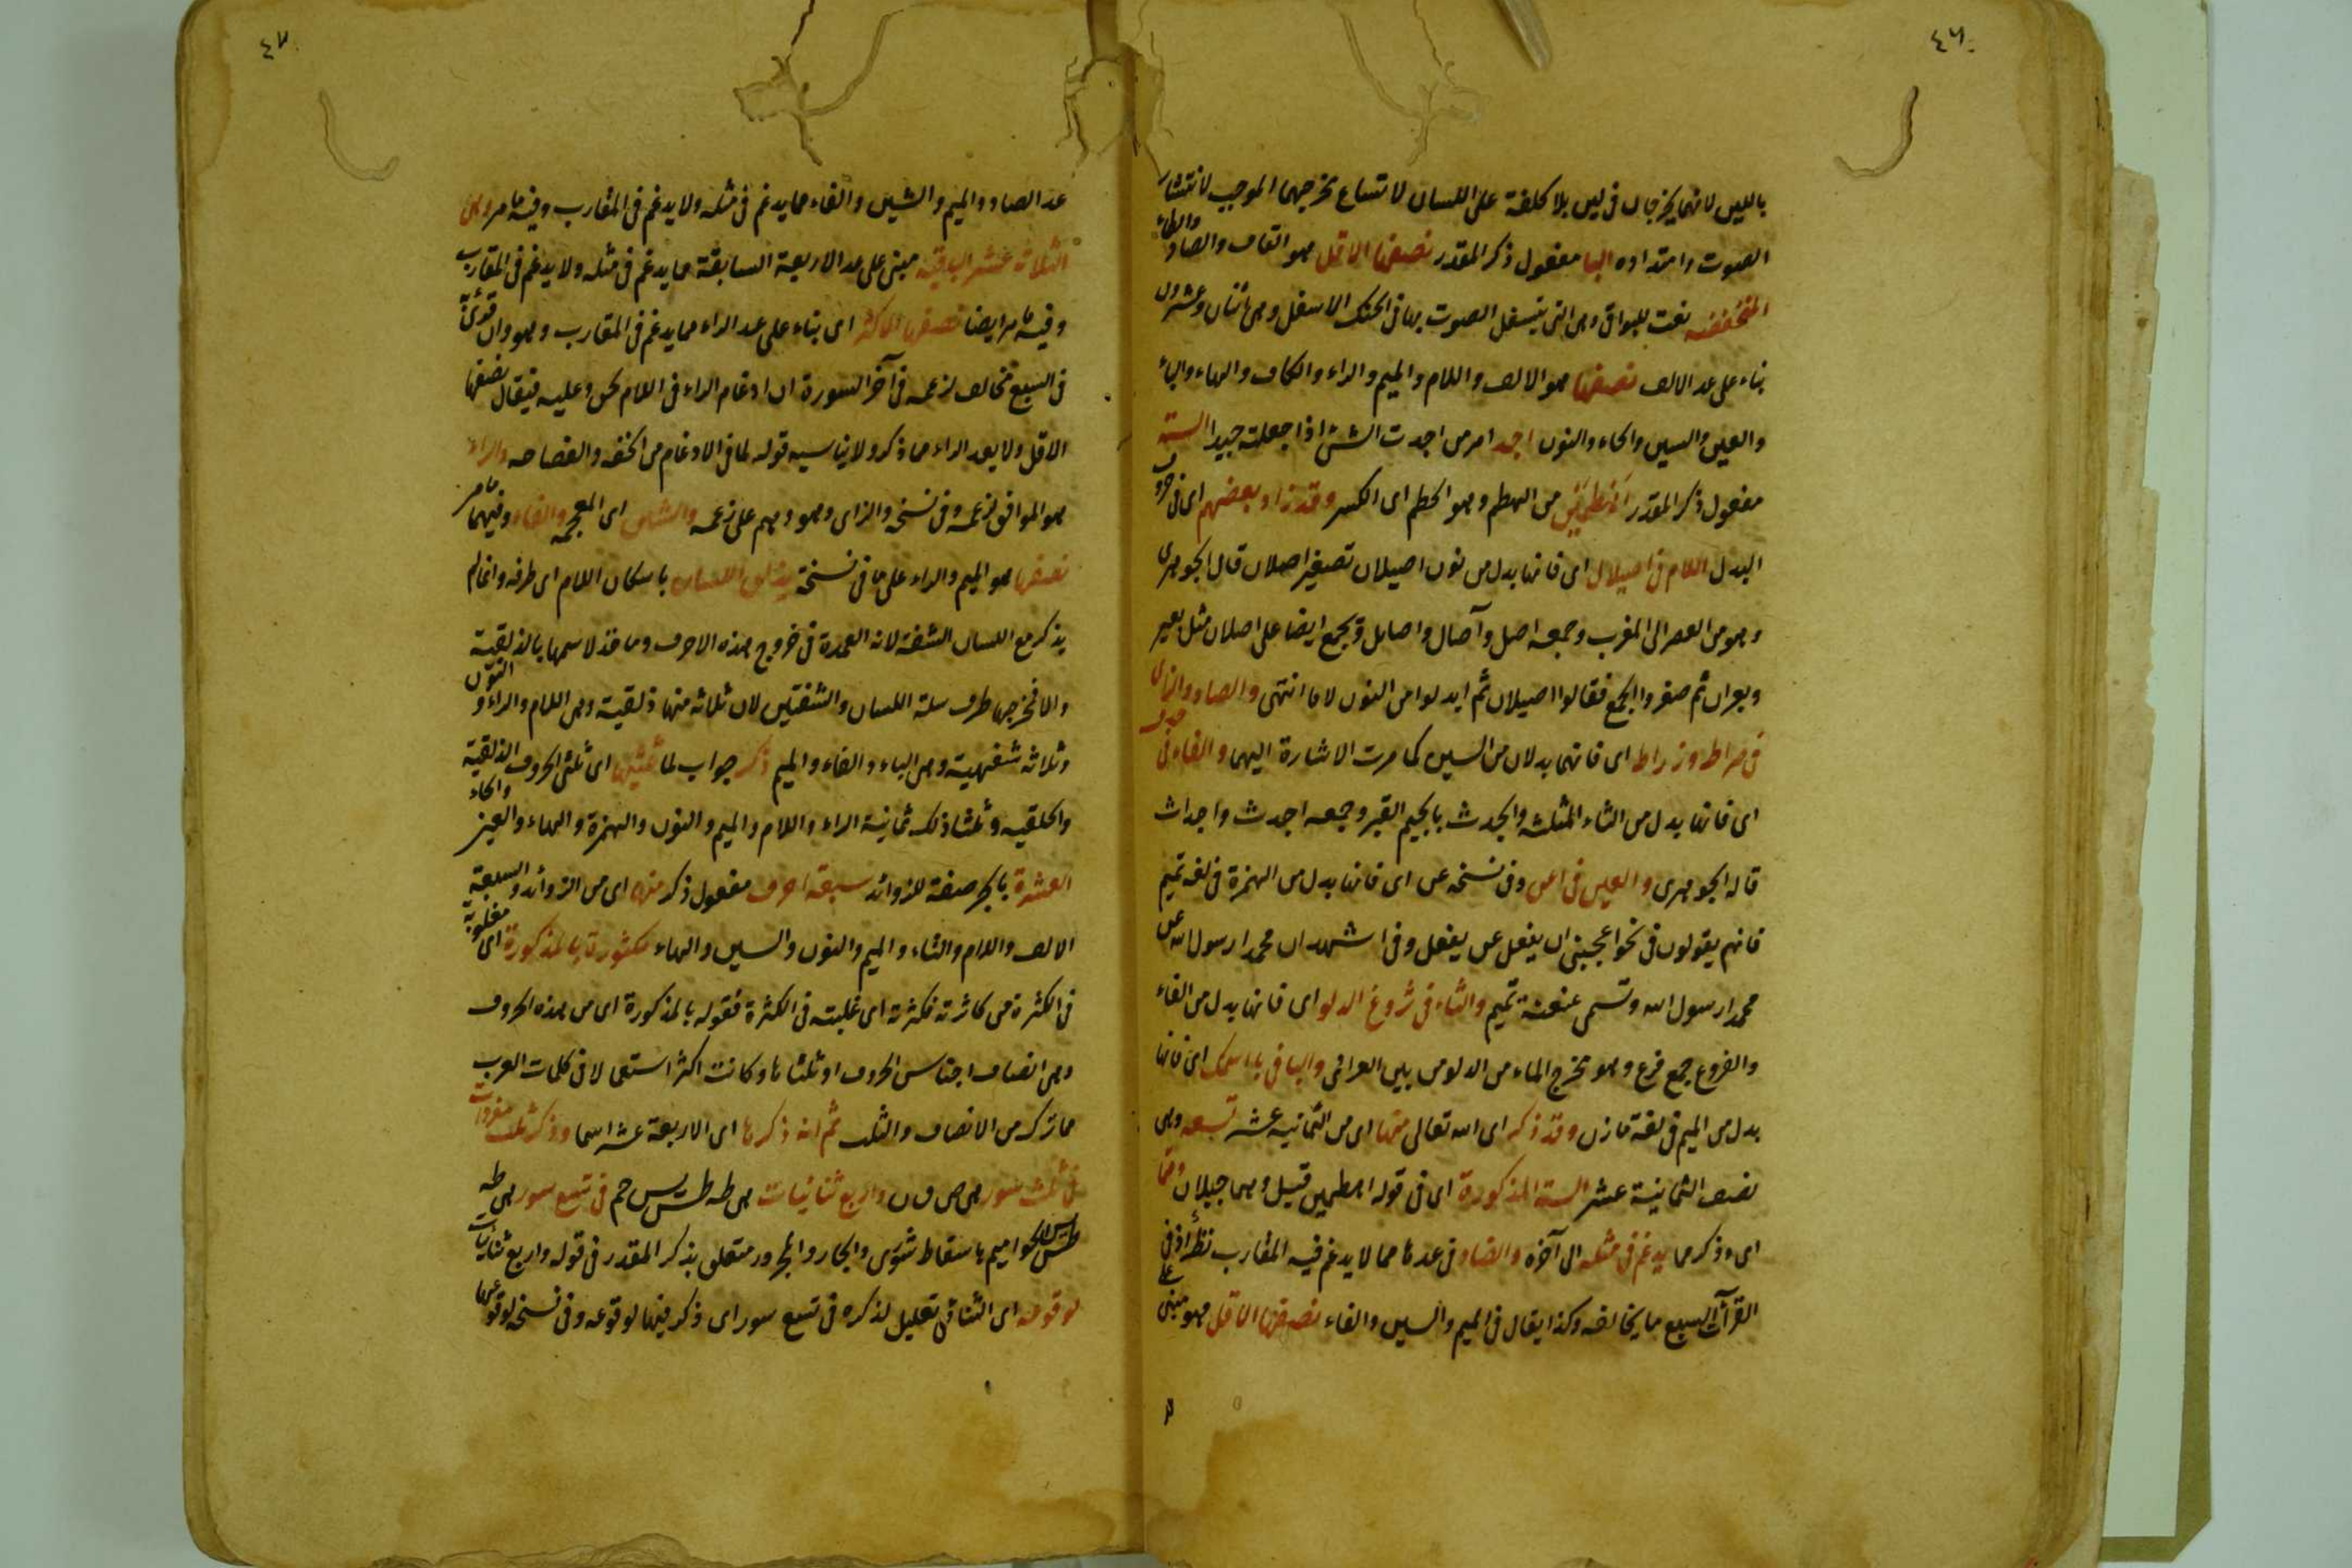 ٤٦
باللين لانهما يخرجان فى لين بلا كلفة على اللسان لاتساع مخرجهما الموجب لانتشار
الصوت وامتداده اليها مفعول ذكر المقدر نصفها الاقل هو القاف والصاد والطاء
المنخفضه نعت للبواقى وهى التى ينسفل الصوت بها فى الحنك الاسفل وهى اثنان وعشرون
بناء على عد الالف نصفها هو الالف واللام والميم والراء والكاف والهاء والياء
والعين والسين والحاء والنون اجد امر من اجدت الشئ اذا جعلته جيدا الستة
مفعول ذكر المقدر اهطمين من الهطم وهو الحطم اى الكسر وقد زاد بعضهم اى فى حروف
البدل اللام فى اصيلال اى فانها بدل من نون اصيلان تصغير اصلان قال الجوهرى
وهو من العصر الى المغرب وجمعه اصل وآصال واصايل ويجمع ايضا على اصلان مثل بعير
وبعران ثم صغروا الجمع فقالوا اصيلان ثم ابدلوا من النون لاما انتهى والصاد والزاى
فى صراط وزراط اى فانهما بدلان من السين كما مرت الاشارة اليهما والفاء فى جدف
اى فانها بدل من الثاء المثلثه والجدث بالجيم القبر وجمعه اجدث واجداث
قاله الجوهرى والعين فى اعن وفى نسخه عن اى فانها بدل من الهمزة فى لغه تميم
فانهم يقولون فى نحو اعجبنى ان يفعل عن يفعل وفى اشهد ان محمدا رسول الله عن
محمدا رسول الله وتسمى عنعنة تميم والثاء فى ثروغ الدلو اى فانها بدل من الفاء
والفروغ جمع فرغ وهو مخرج الماء من الدلو من بين العراقى والبا فى باسمك اى فانها
بدل من الميم فى لغة مازن وقد ذكر اى الله تعالى منها اى من الثمانيه عشر تسعه وهى
نصف الثمانية عشر الستة المذكورة اى فى قوله اهطمين قتيل وهما جبلان ومما
اى وذكر مما يدغم فى مثله الى آخره والضاد فى عدها مما لا يدغم فيه المقارب نظر اذ فى
القرآت السبع ما يخالفه وكذا يقال فى الميم والسين والفاء نصفها الاقل فهو مبنى على
٤٧
عد الصاد والميم والشين والفاء مما يدغم فى مثله ولا يدغم فى المقارب وفيه ما مر وهى
الثلاثة عشر الباقيه مبنى على عد الاربعة السابقة مما يدغم فى مثله ولا يدغم فى المقارب
وفيه ما مر ايضا نصفها الاكثر اى بناء على عد الراء مما يدغم فى المقارب وهو وان قرئ به
فى السبع مخالف لزعمه فى آخر السورة ان ادغام الراء فى اللام لحن وعليه فيقال نصفها
الاقل ولا يعد الراء مما ذكر ولا يناسبه قوله لما فى الادغام من الخفه والفصاحه والراء
هو الموافق لزعمه وفى نسخه والزاى وهو وهم على زعمه والشين اى المعجمه والفاء وفيهما ما مر
نصفها هو الميم والراء على ما فى نسخة بذلق اللسان باسكان اللام اى طرفه وانما لم
يذكر مع اللسان الشفة لانه العمدة فى خروج هذه الاحرف وماخذ لاسمها بالذلقية
والا فمخرجها طرف سلة اللسان والشفتين لان ثلاثه منها ذلقية وهى اللام والراء والنون
وثلاثه شفهية وهى الباء والفاء والميم ذكر جواب لما ثلثيها اى ثلثى الحروف الذلقية
والحلقيه وثلثا ذلك ثمانية الراء واللام والميم والنون والهمزة والهاء والعين والحاء
العشرة بالجر صفة للزوائد سبعة احرف مفعول ذكر منها اى من الزوائد والسبعة
الالف واللام والتاء والميم والنون والسين والهاء مكثورة بالمذكورة اى مغلوبة
فى الكثرة من كاثرته فكثرته اى غلبته فى الكثرة فقوله بالمذكورة اى من هذه الحروف
وهى انصاف اجناس الحروف او ثلثاها وكانت اكثر استعمالا فى كلمات العرب
مما ترك من الانصاف والثلث ثم انه ذكرها اى الاربعة عشر اسما وذكر ثلث مفردات
فى ثلث سور هى ص ق ن واربع ثنائيات هى طه طس يس حم فى تسع سور هى طه
طس يس الحواميم باسقاط شورى والجار والمجرور متعلق بذكر المقدر فى قوله واربع ثنائيات
لوقوعه اى الثنائى تعليل لذكره فى تسع سور اى ذكر فيها لوقوعه وفى نسخه لوقوعها